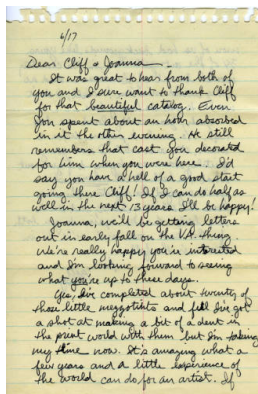 6/17
Dear Cliff & Joanna
It was great to hear from both of
you and I sure want to thank Cliff
for that beautiful catalog. Even
spent about an hour absorbed
in it the other evening. He still
remembers that cast you decorated
for him when you were here. I'd
say you have a hell of a good start
going there Cliff! If I can do half as
well in the next 13 years I'll be happy!
Joanna, we'll be getting letters
out in early fall on the V.A. thing
we're really happy you're interested
and I'm looking forward to seeing
what you're up to these days.
Yes, I've completed about twenty of
those little mezzotints and feel I've got
a shot at making a bit of a dent in
the print world with them but I'm taking
my time now. It's amazing what a
few years and a little experience of
the world can do for an artist. If